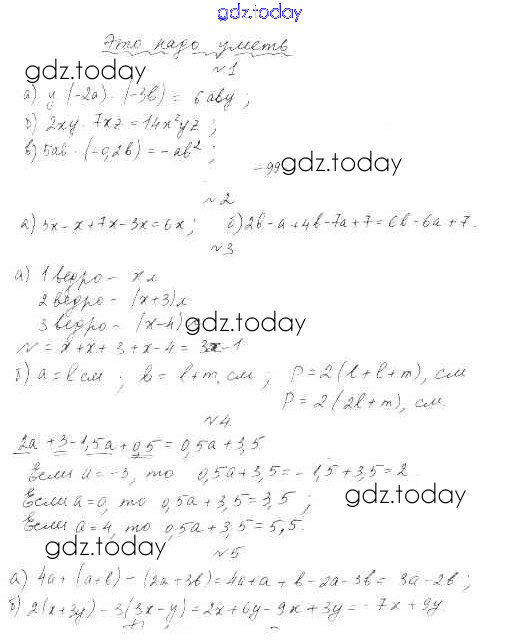 gdz.today
Это надо уметь
gdz.today
№1
а) y(-2a)·(-3b) = 6aby;
б) 2xy·7xz = 14x²yz;
в) 5ab·(-0,2b) = -ab²;
-99 gdz.today
№2
а) 3x-x+7x-3x=6x; б) 2b-a+4b-7a+7=6b-6a+7.
№3
а) 1 ведро - x л
2 ведро - (x+3) л
3 ведро - (x-4) л
gdz.today
N = x+x+3+x-4 = 3x-1
б) a=l см; b=l+m, см; P=2(l+l+m), см
P=2(2l+m), см.
№4
2a+3-1,5a+0,5=0,5a+3,5
Если a=-3, то 0,5a+3,5=-1,5+3,5=2.
Если a=0, то 0,5a+3,5=3,5;
gdz.today
Если a=4, то 0,5a+3,5=5,5.
gdz.today
№5
а) 4a+(a+b)-(2a+3b)=4a+a+b-2a-3b=3a-2b;
б) 2(x+3y)-3(3x-y)=2x+6y-9x+3y=-7x+9y